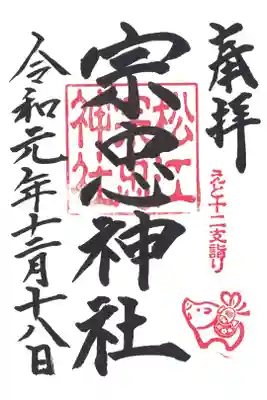 奉拝
えと十二支詣り
宗忠神社
松江
宗忠
神社
令和元年十二月十八日